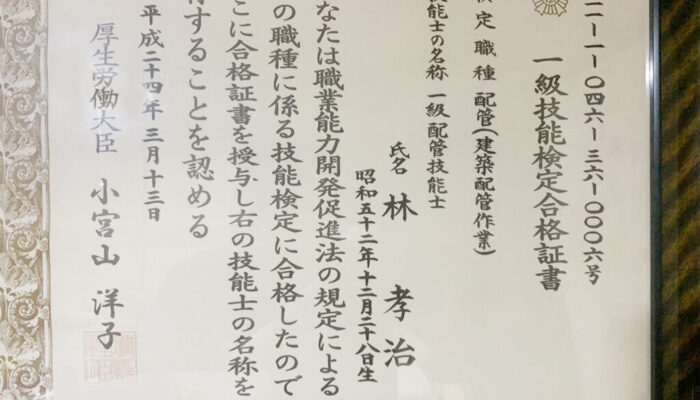 二一－一－〇四六－三六－〇〇〇六号
一級技能検定合格証書
検定職種 配管(建築配管作業)
技能士の名称 一級配管技能士
氏名 林 孝治
昭和五十二年十二月二十八日生
なたは職業能力開発促進法の規定による
の職種に係る技能検定に合格したので
こに合格証書を授与し右の技能士の名称を
有することを認める
平成二十四年三月十三日
厚生労働大臣 小宮山 洋子